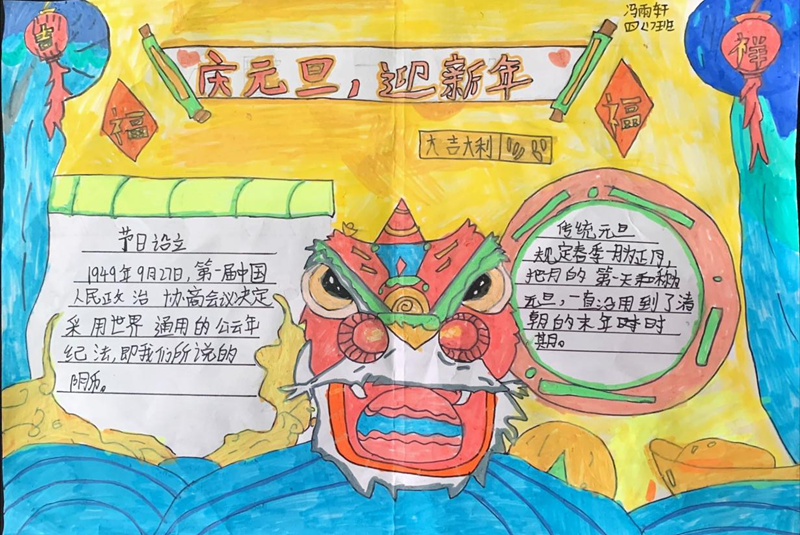 冯雨轩
四(7)班
吉
庆元旦，迎新年
祥
福
福
大吉大利
节日设立
1949年9月27日,第一届中国
人民政治 协商会议决定
采用世界 通用的公云年
纪法,即我们所说的
阴历。
传统元旦
规定春季一月为正月,
把月的 第一天和称为
元旦,一直沿用到了清
朝的末年时时
期。